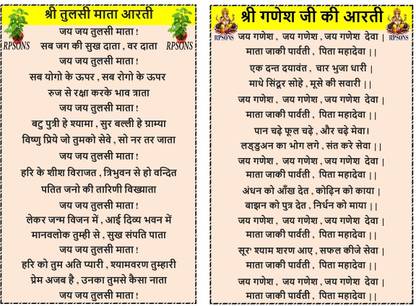 श्री तुलसी माता आरती
RPSONS
RPSONS
जय जय तुलसी माता !
सब जग की सुख दाता , वर दाता
जय जय तुलसी माता !
सब योगो के ऊपर , सब रोगो के ऊपर
रुज से रक्षा करके भाव त्राता
जय जय तुलसी माता !
बटु पुत्री हे श्यामा , सुर बल्ली हे ग्राम्या
विष्णु प्रिये जो तुमको सेवे , सो नर तर जाता
जय जय तुलसी माता !
हरि के शीश विराजत , त्रिभुवन से हो वन्दित
पतित जनो की तारिणी विख्याता
जय जय तुलसी माता !
लेकर जन्म विजन में , आई दिव्य भवन में
मानवलोक तुम्ही से , सुख संपति पाता
जय जय तुलसी माता !
हरि को तुम अति प्यारी , श्यामवरण तुम्हारी
प्रेम अजब है , उनका तुमसे कैसा नाता
जय जय तुलसी माता !
श्री गणेश जी की आरती
RPSONS
RPSONS
जय गणेश , जय गणेश ,जय गणेश देवा |
माता जाकी पार्वती , पिता महादेवा ||
एक दन्त दयावंत , चार भुजा धारी |
माथे सिंदूर सोहे , मूसे की सवारी ||
जय गणेश , जय गणेश , जय गणेश देवा |
माता जाकी पार्वती , पिता महादेवा ||
पान चढ़े फूल चढ़े , और चढ़े मेवा।
लड्डुअन का भोग लगे , संत करे सेवा ||
जय गणेश , जय गणेश , जय गणेश देवा |
माता जाकी पार्वती , पिता महादेवा ||
अंधन को आँख देत , कोढ़िन को काया |
बाझन को पुत्र देत , निर्धन को माया ||
जय गणेश , जय गणेश , जय गणेश देवा |
माता जाकी पार्वती , पिता महादेवा ||
सूर श्याम शरण आए , सफल कीजे सेवा |
माता जाकी पार्वती , पिता महादेवा ||
जय गणेश , जय गणेश , जय गणेश देवा |
माता जाकी पार्वती , पिता महादेवा ||